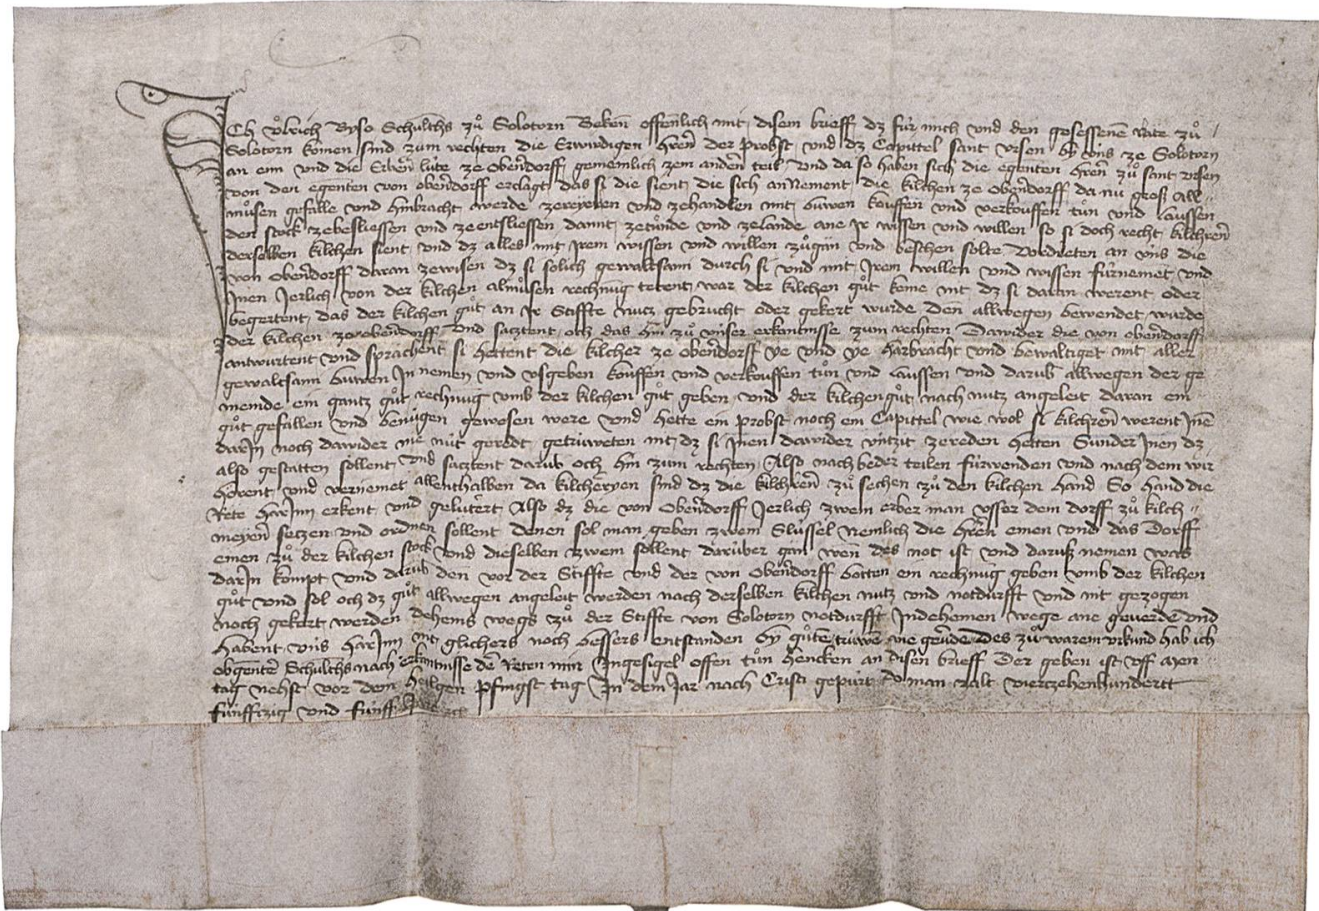 Ich Uͦlrich Byso Schulths zuͦ Solotorn Beken̄ offenlich mit disem brieff dz fúr mich vnd den gesessenē râte zuͦ
Solotorn komen sind zum rechten die Erwirdigen Hren̄ der Probst vnd dz Capittel sant vrsen by vns ze Solotorn
an eim vnd die Erben̄ lúte ze Obern̄dorff gemeinlich zem anderē teil Vnd da so haben sich die egenten Hren̄ zuͦ sant vrsen
von den egenten von obern̄dorff erclagt das si die sient die sich an Nement die kilchen ze Obern̄dorff da nu groß All
muͦsen gefalle vnd Hinbracht werde zereyeren vnd zehandlen mit buwen kouffen vnd verkouffen tuͦn vnd laussen
den stock zebesliessen vnd ze entsliessen damit zetuͦnde vnd zelande ane Ir wissen vnd willen so si doch recht kilchren̄
derselben kilchen sient vnd dz alles mit Irem wissen vnd willen zuͦgan vnd beschen solte Vordreten an vns die
von Obern̄dorff daran zewisen dz si solich gewaltsami durch si vnd mit Irem willen vnd wissen fúrnemet vnd
Inen Jerlich von der kilchen almuͦsen rechnug tetent war der kilchen guͦt keme nit dz si daran werent oder
begertent das der kilchen guͦt an Ir Stiffte nutz gebrucht oder gekert wurde den̄ allwegen bewendet wurde
der kilchen zerobern̄dorff vnd satztent och das hin zuͦ vnser erkantnisse zum rechten Dawider die von obern̄dorff
antwurtent vnd sprachent si Hettent die kilchen ze obern̄dorff ye vnd ye Harbracht vnd bewaltiget mit aller
gewaltsami buwen Jn nemen vnd vsgeben kouffen vnd verkouffen tuͦn vnd laussen vnd darub̄ allwegen der ge
meinde ein gantz guͦt rechnug vmb der kilchen guͦt geben vnd der kilchen guͦt nach nutz angeleit daran ein
guͦt gefallen vnd benuͤgen gewesen were vnd Hette ein probst noch ein Capittel wie wol si kilchren̄ werent Inē
darIn noch dawider nie nút geredt getruweten nit dz si Inen dawider vntzit zereden Hetten Sunder Inen dz
also gestatten sollent vnd satztent darub̄ och Hin zum rechten Also nach beder teilen fúrwenden vnd nach dem wir
Horent vnd vernemet allenthalben da kilcheryen sind dz die kilchren̄ zuͦ sechen zuͦ den kilchen Hand So Hand die
Rete HarInn erkent vnd gelútert Also dz die von Obern̄dorff Jerlich zwein erber man vsser dem dorff zuͦ kilch
meyern̄ setzen vnd ordnen sollent denen sol man geben zwein Slússel Nemlich die Hren̄ einen vnd das Dorff
einen zuͦ der kilchen stock vnd dieselben zwein sollent darúber gan wen̄ des not ist vnd daruß nemen was
darIn kompt vnd darub̄ den̄ vor der Stiffte vnd der von Obern̄dorff botten ein rechnug geben vmb der kilchen
guͦt vnd sol och dz guͦt allwegen angeleit werden nach derselben kilchen nutz vnd notdurfft vnd nit gezogen
noch gekert werden deheins wegs zuͦ der Stiffte von Solotorn notdurfft Indeheinen wege ane geuerde vnd
Habent vns HarInn nit glichers noch bessers entstanden by guͦtē trúwē ane geūde Des zuͦ warem vrkund hab ich
obgenter̄ Schulths nach erkantnisse der̄ Reten min Ingesigel offen tuͦn Hencken an disen brieff Der geben ist vff zin
tag nehst vor dem Heilgen Pfingst tag In dem Jar nach Cristi gepúrt do man zalt vierzehenhundertt
fúnfftzig vnd fúnff Jar